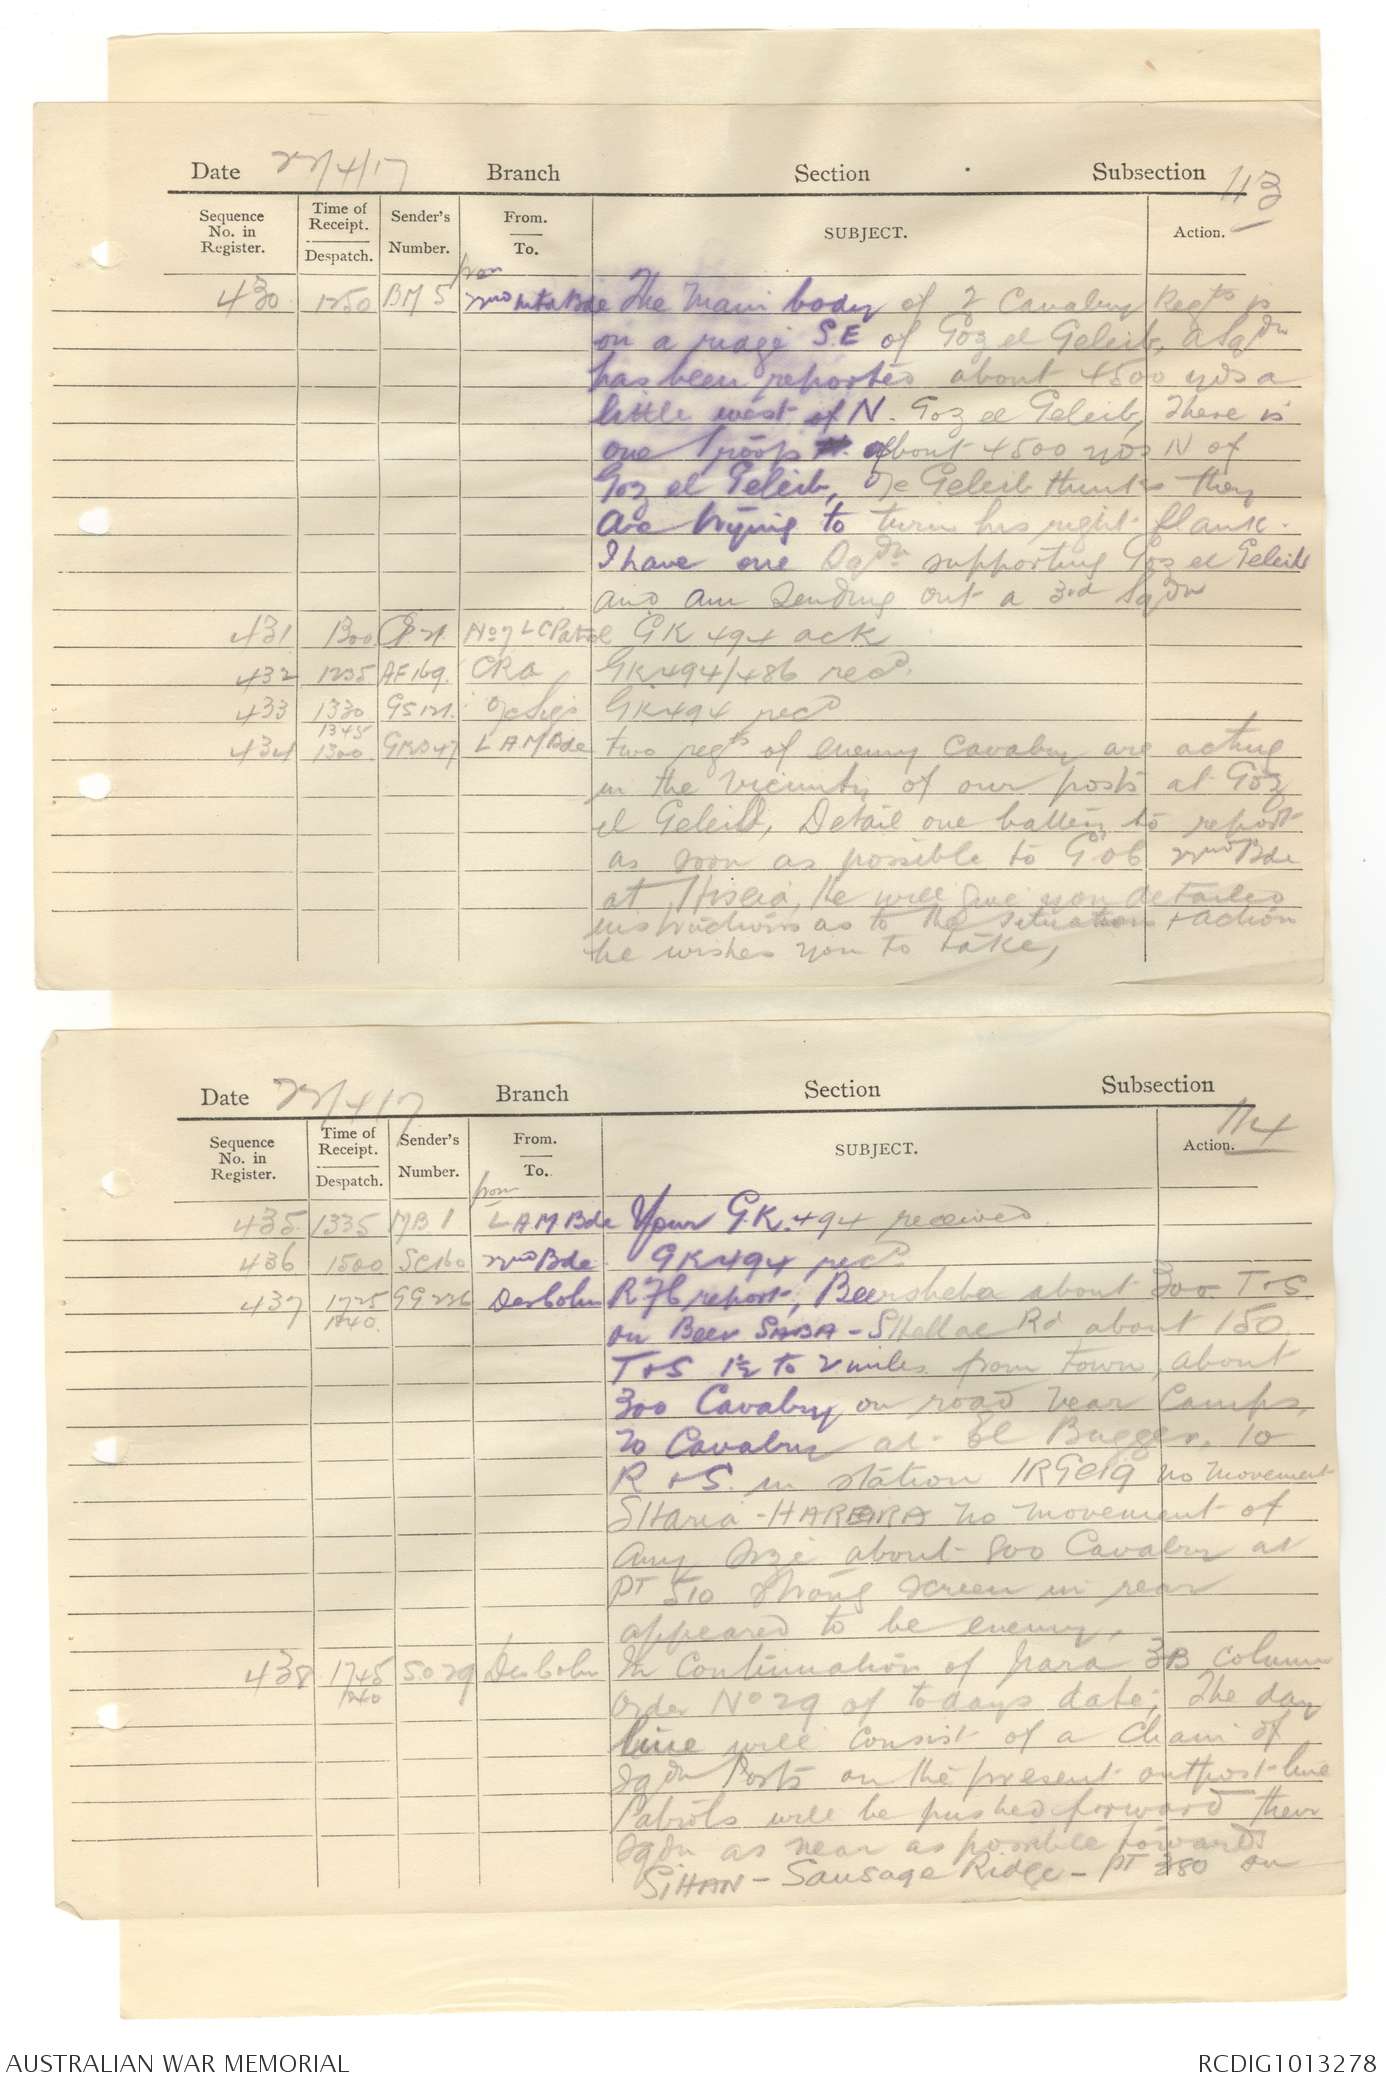 Date 22/4/17 Branch Section Subsection 113
Sequence No. in Register. Time of Receipt. Despatch. Sender's Number. From. To. SUBJECT. Action.
from
430 1250 BM 5 22nd Mtd Bde The Main body of 2 Cavalry Regts is
on a ridge S.E of Goz el Geleib, a Sqdn
has been reported about 4500 yds a
little west of N. Goz el Geleib, There is
one troop about 4500 yds N of
Goz el Geleib, O/c Geleib thinks they
are trying to turn his right flank.
I have one Sqdn supporting Goz el Geleib
and am sending out a 3rd Sqdn
431 1300 No 7 LC Patrol GK 494 ack
432 1235 AF 169. CRA GK494/486 recd.
433 1330 GS 121. O/c Sigs GK494 recd
1345
434 1300 L A M Bde two regts of enemy cavalry are acting
in the vicinity of our posts at Goz
el Geleib, Detail one battery to report
as soon as possible to GOC 22nd Bde
at Hiseia, he will give you detailed
instructions as to the situation + action
he wishes you to take,
Date 22/4/17 Branch Section Subsection 114
Sequence No. in Register. Time of Receipt. Despatch. Sender's Number. From. To. SUBJECT. Action.
from
435 1335 MB 1 L A M Bde Your G.K. 494 received
436 1500 SC160 22nd Bde GK494 recd
437 1725 GG226 Descolm R76 report, Beersheba about 300 T+S
1740.
on Beer SABA - SHellal Rd about 150
T+S 1½ to 2 miles from town, about
300 Cavalry on road near Camps,
20 Cavalry at El Buggar, 10
R+S. in station IRGEIG no movement
SHaria - HARERA no movement of
any size about 800 Cavalry at
PT 510 strong screen in rear
appeared to be enemy,
438 1745 SO 29 Descolm In Continuation of para 3B column
1740
order No 29 of todays date; The day
line will consist of a Chain of
Sqdn Posts on the present outpost line
Patrols will be pushed forward their
Sqdn as near as possible towards
SIHAN - Sausage Ridge - PT 380 on
AUSTRALIAN WAR MEMORIAL
RCDIG1013278